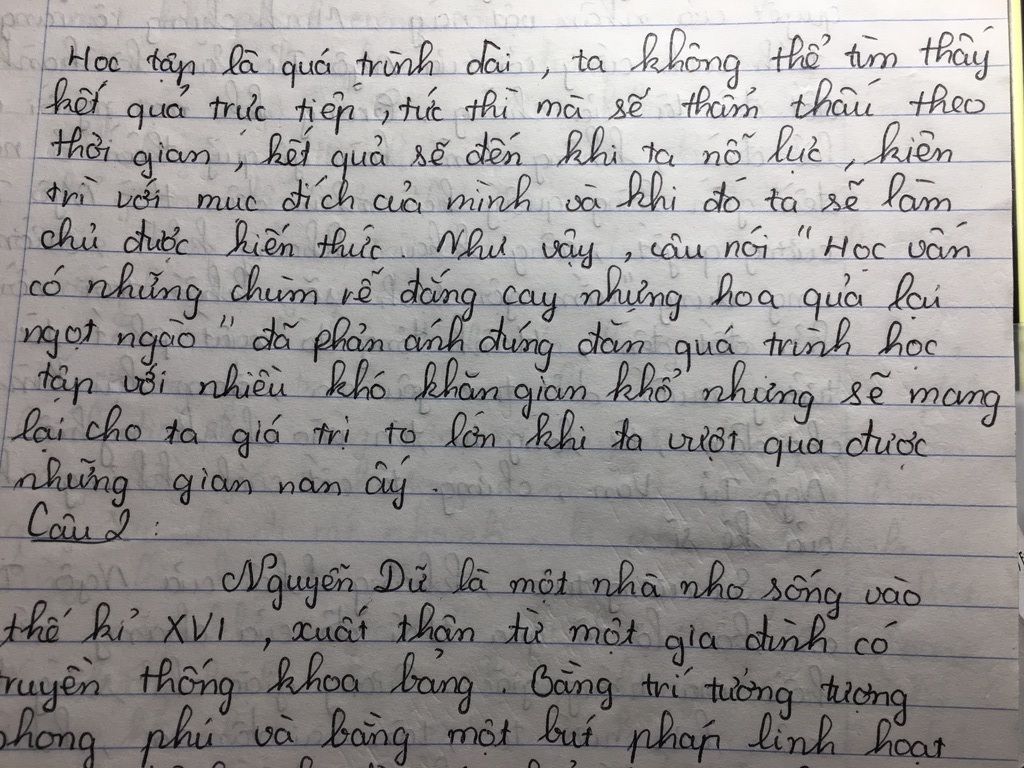 Học tập là quá trình dài, ta không thể tìm thấy
kết quả trực tiếp, tức thì mà sẽ thẩm thấu theo
thời gian, kết quả sẽ đến khi ta nỗ lực, kiên
trì với mục đích của mình và khi đó ta sẽ làm
chủ được kiến thức. Như vậy, câu nói "Học vấn
có những chùm rễ đắng cay nhưng hoa quả lại
ngọt ngào" đã phản ánh đúng đắn quá trình học
tập với nhiều khó khăn gian khổ nhưng sẽ mang
lại cho ta giá trị to lớn khi ta vượt qua được
những gian nan ấy.
Câu 2:
Nguyễn Dữ là một nhà nho sống vào
thế kỉ XVI, xuất thân từ một gia đình có
truyền thống khoa bảng. Bằng trí tưởng tượng
phong phú và bằng một bút pháp linh hoạt